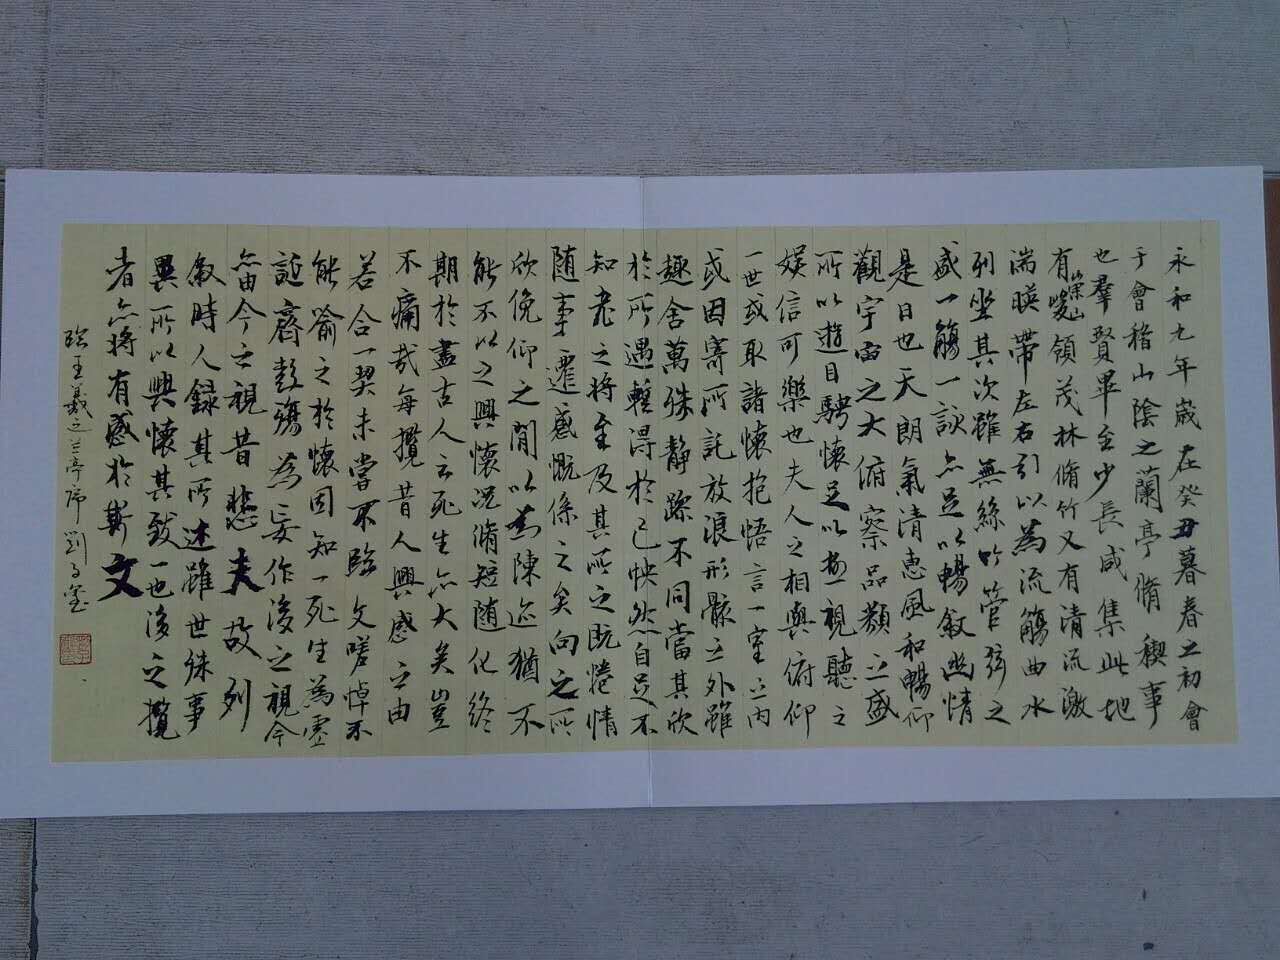 永和九年歲在癸丑暮春之初會
于會稽山陰之蘭亭脩稧事
也羣賢畢至少長咸集此地
有崇山峻領茂林脩竹又有清流激
湍暎帶左右引以為流觴曲水
列坐其次雖無絲竹管弦之
盛一觴一詠亦足以暢敘幽情
是日也天朗氣清惠風和暢仰
觀宇宙之大俯察品類之盛
所以遊目騁懷足以極視聽之
娛信可樂也夫人之相與俯仰
一世或取諸懷抱悟言一室之內
或因寄所託放浪形骸之外雖
趣舍萬殊靜躁不同當其欣
於所遇暫得於己怏然自足不
知老之將至及其所之既惓情
隨事遷感慨係之矣向之所
欣俛仰之閒以為陳迹猶不
能不以之興懷況脩短隨化終
期於盡古人云死生亦大矣豈
不痛哉每攬昔人興感之由
若合一契未嘗不臨文嗟悼不
能喻之於懷固知一死生為虛
誕齊彭殤為妄作後之視今
亦由今之視昔悲夫故列
敘時人錄其所述雖世殊事
異所以興懷其致一也後之攬
者亦將有感於斯文
臨王羲之兰亭序劉